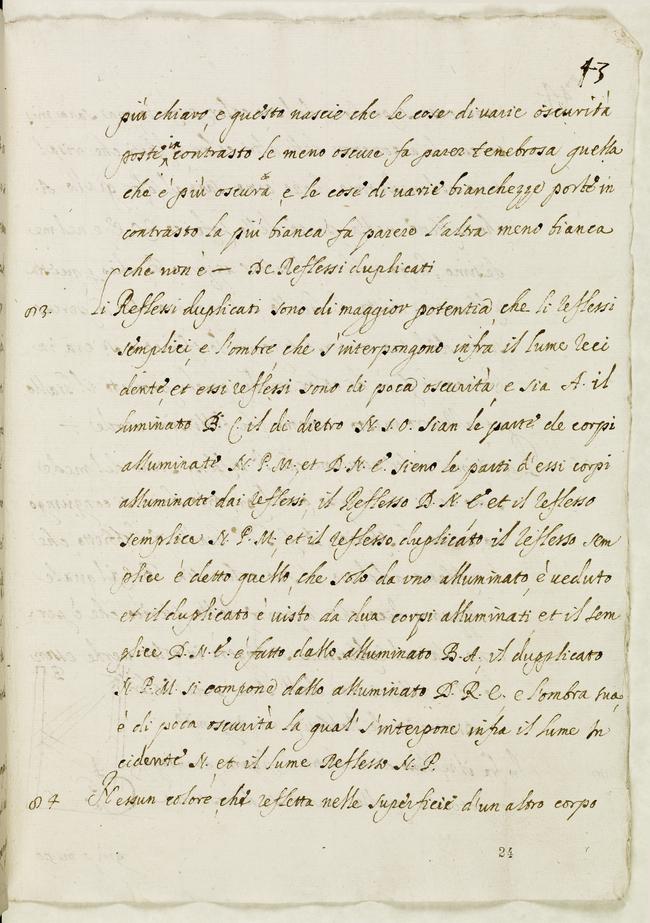 43
più chiaro, e questo nascie che le cose di varie oscurità
poste in contrasto le meno oscure fa parer tenebrosa quella
che è più oscura, e le cose di varie bianchezze poste in
contrasto la più bianca fa parere l'altra meno bianca
che non è — De Reflessi duplicati
83. Li Reflessi duplicati sono di maggior potentia, che li reflessi
semplici, e l'ombre che s'interpongono infra il lume Inci
dente, et essi reflessi sono di poca oscurità, e sia A. il
luminato B. C il di dietro N. S. O. sian le parte de corpi
alluminate N. P. M. et D. N. E. sieno le parti d'essi corpi
alluminate dai reflessi, il Reflesso D. N. E. et il reflesso
semplice N. P. M. et il reflesso duplicato il reflesso sem
plice è detto quello, che solo da uno alluminato, è veduto
et il duplicato è visto da dua corpi alluminati, et il sem
plice D. N. E. è fatto dallo alluminato B. A, il dupplicato
N. P. M. si compone dallo alluminato D. R. E. e l'ombra sua,
è di poca oscurità la qual' s'interpone infra il lume In
cidente N. et il lume Reflesso N. P.
84 Nessun colore, che refletta nelle superficie d'un altro corpo
24